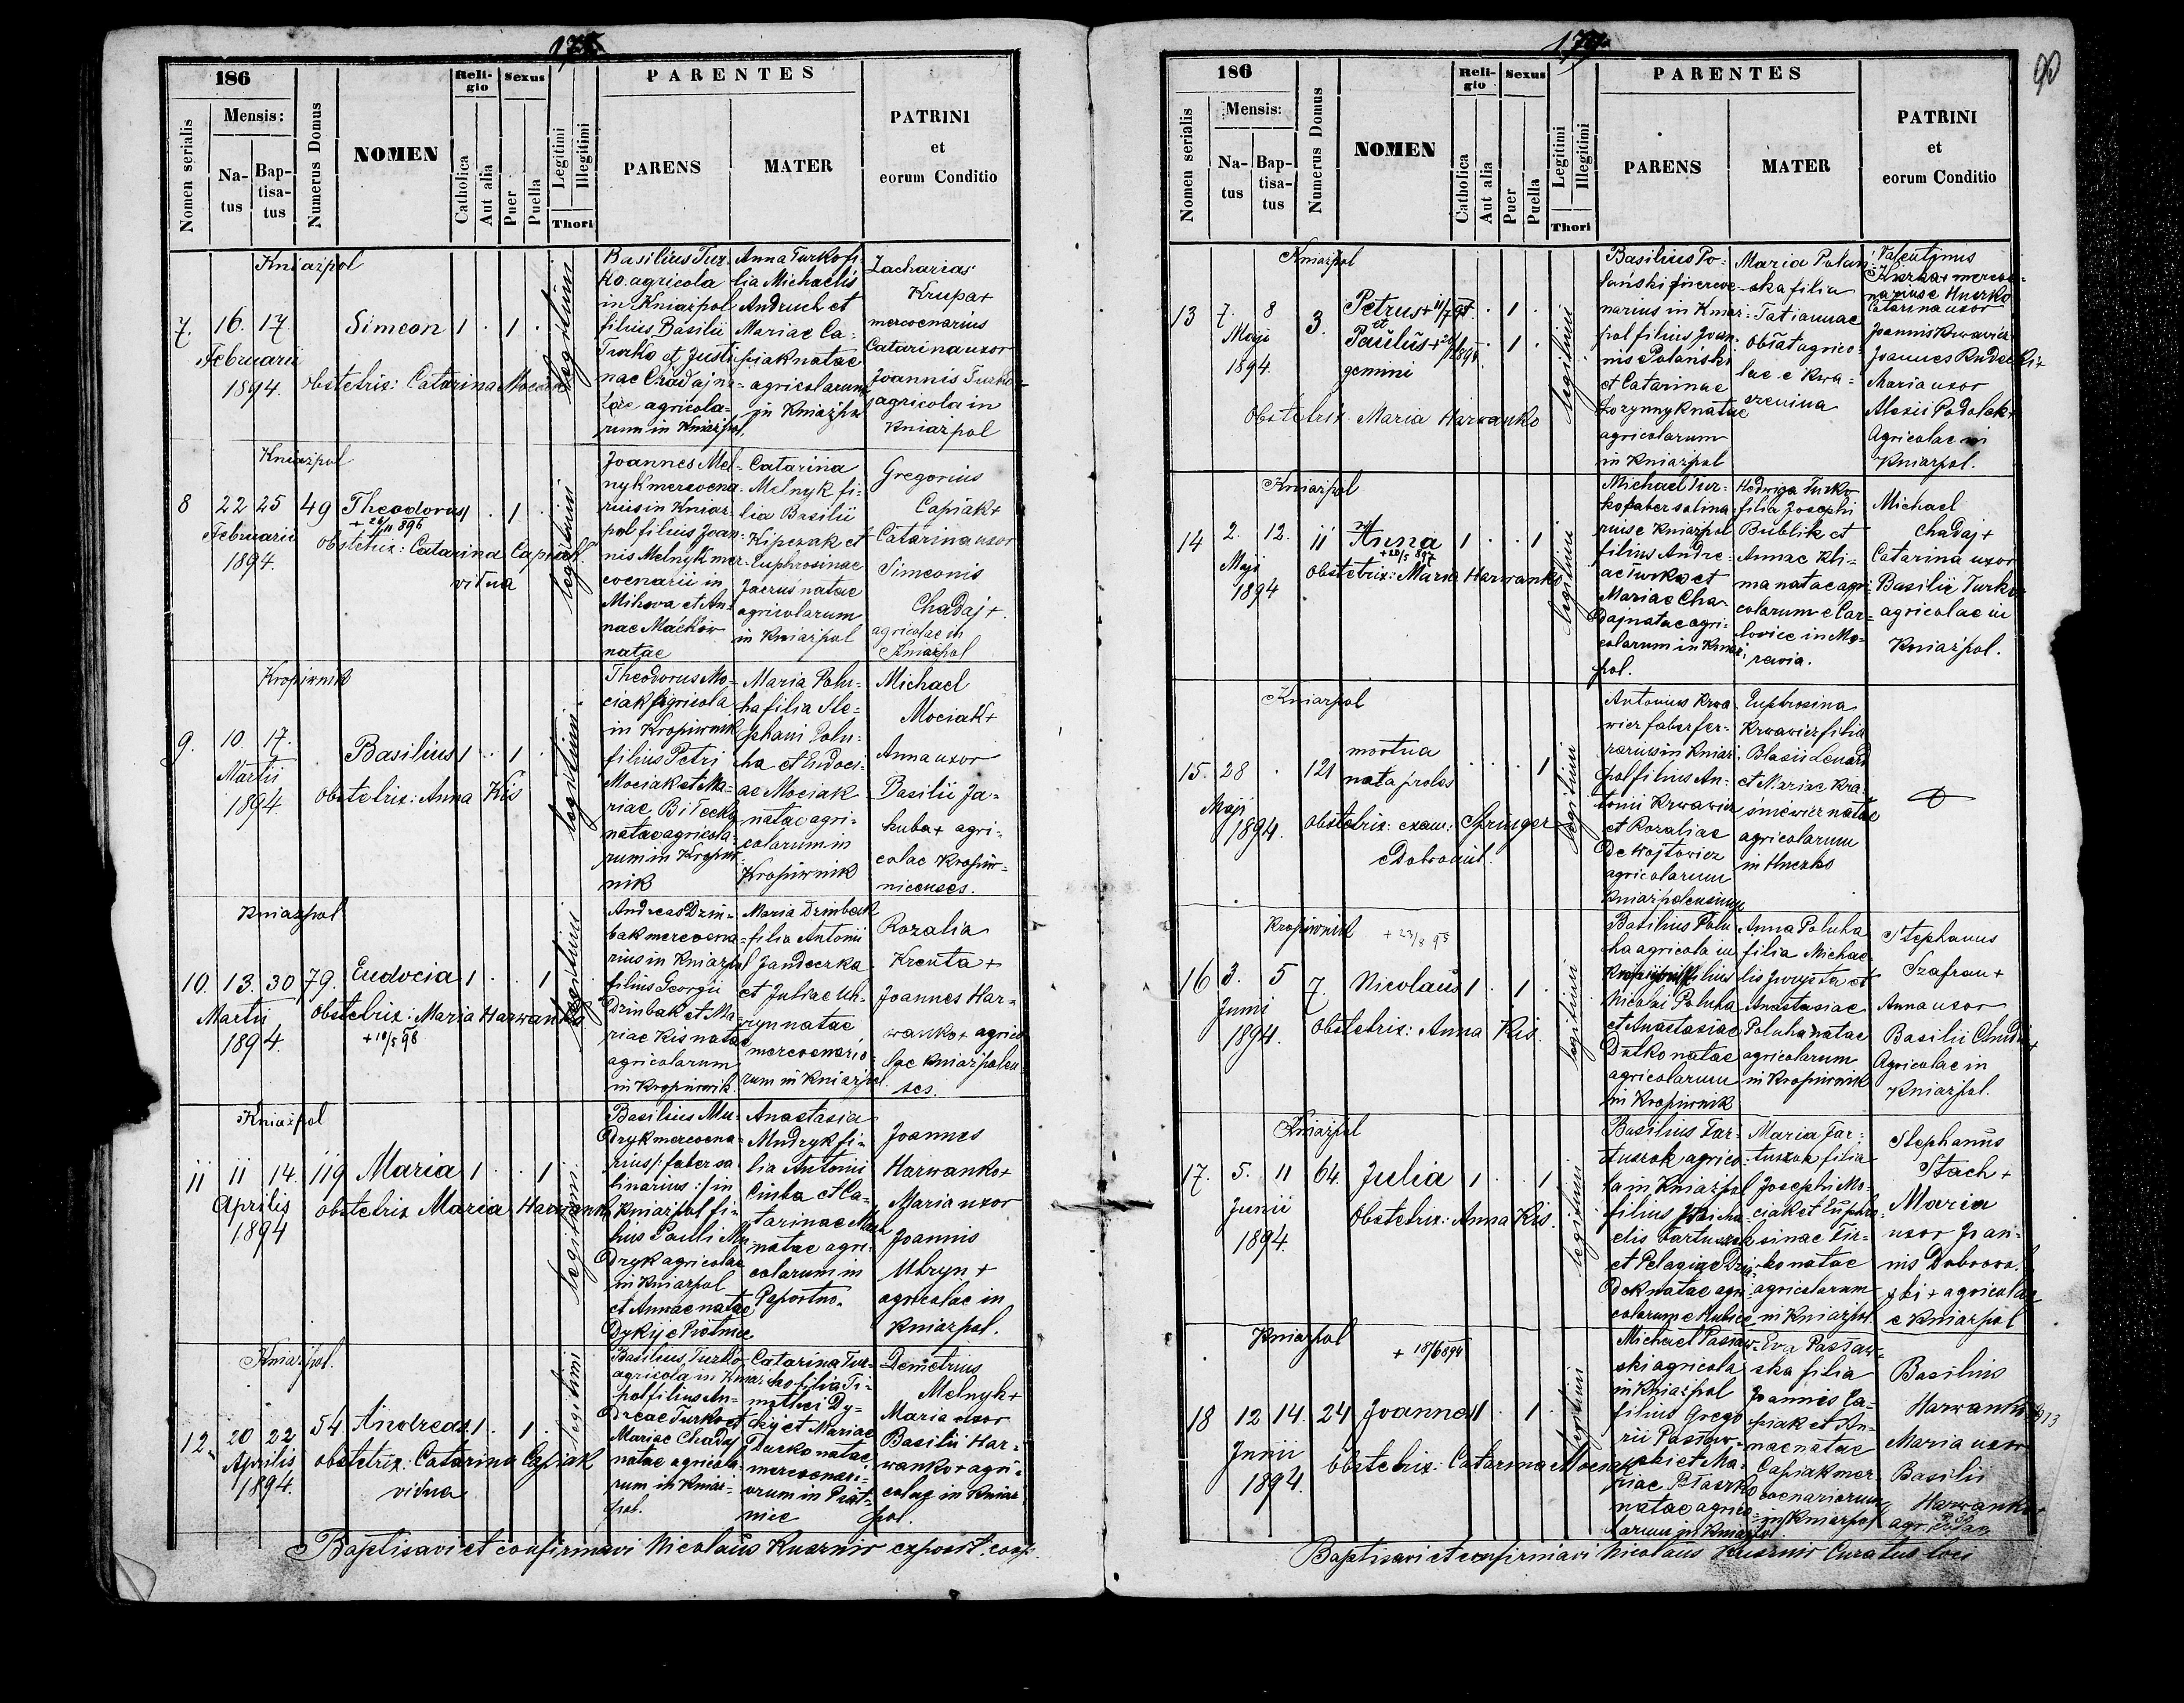 186
Nomen serialis
Mensis:
Natus
Baptisatus
Numerus Domus
NOMEN
Religio
Catholica
Aut alia
Sexus
Puer
Puella
Legitimi
Illegitimi
Thori
PARENTES
PARENS
MATER
PATRINI
et
eorum Conditio
Kniażpol
7. 16. 17.
Februarii
1894.
Simeon 1 . 1 .
obstetrix: Catarina Mociak
legitimi
Basilius Tur-
ko agricola
in Kniażpol
filius Basilii
Turko et Justi-
nae Chadaj na-
tae agricola-
rum in Kniażpol.
Anna Turko fi-
lia Michaelis
Andruch et
Mariae Ca-
piak natae
agricolarum
in Kniażpol
Zacharias
Krupa +
mercenarius
Catarina uxor
Joannis Turko
agricola in
Kniażpol
Kniażpol
8 22 25 49 Theodorus 1 . 1 .
+ 26/11 896
Februarii
1894.
obstetrix: Catarina Capiak
vidua
legitimi
Joannes Mel-
nyk mercena-
rius in Kniaż-
pol filius Joan-
nis Melnyk mer-
cenarii in
Mihova et An-
nae Maćków
natae
Catarina
Melnyk fi-
lia Basilii
Kipczak et
Euphrosinae
Jacruś natae
agricolarum
in Kniażpol
Gregorius
Capiak +
Catarina uxor
Simeonis
Chadaj +
agricolae in
Kniażpol
Kropiwnik
9. 10. 17.
Martii
1894.
Basilius 1 . 1 .
obstetrix: Anna Kis
legitimi
Theodorus Mo-
ciak agricola
in Kropiwnik
filius Petri
Mociak et Ma-
riae Biłecka
natae agricola-
rum in Kropiw-
nik
Maria Polu-
ha filia Ste-
phani Polu-
ha et Eudoci-
ae Mociak
natae agri-
colarum in
Kropiwnik
Michael
Mociak +
Anna uxor
Basilii Ja-
kuba + agri-
colae Kropiw-
nicenses.
Kniażpol
10. 13. 30 79. Eudocia 1 . . 1
Martii
1894.
obstetrix: Maria Harwanko
+ 10/5 98
legitimi
Andreas Dzim-
bak mercena-
rius in Kniażpol
filius Georgii
Dzimbak et Ma-
riae Kis natae
agricolarum
in Kropiwnik.
Maria Dzimbak
filia Antonii
Jandeczka
et Juliae Uh-
ryn natae
mercenario-
rum in Kniażpol.
Rozalia
Krenta +
Joannes Har-
wanko + agrico-
lae Kniażpolen-
ses.
Kniażpol
11 11 14. 119 Maria 1 . . 1
Aprilis
1894
obstetrix Maria Harwanko
legitimi
Basilius Mu-
dryk mercena-
rius /: faber sa-
linarius :/ in
Kniażpol fi-
lius Pauli Mu-
dryk agricolae
in Kniażpol
et Annae natae
Dykij e Piatnice
Anastasia
Mudryk fi-
lia Antonii
Cimba et Ca-
tarinae
natae agri-
colarum in
Paportno.
Joannes
Harwanko +
Maria uxor
Joannis
Uhryn +
agricolae in
Kniażpol.
Kniażpol.
12. 20 22 54 Andreas 1 . 1 .
Aprilis
1894.
obstetrix: Catarina Capiak
vidua
legitimi
Basilius Turko
agricola in Kniaż-
pol filius An-
dreae Turko et
Mariae Chadaj
natae agricola-
rum in Kniaż-
pol.
Catarina Tur-
ko filia Ti-
mothei Dy-
kij et Mariae
Dusko natae
mercenari-
orum in Piąt-
nice
Demetrius
Melnyk +
Maria uxor
Basilii Har-
wanko + agri-
colae in Kniaż-
pol.
Baptisavi et confirmavi Nicolaus Kusznir exposit. coop.
90
186
Nomen serialis
Mensis:
Natus
Baptisatus
Numerus Domus
NOMEN
Religio
Catholica
Aut alia
Sexus
Puer
Puella
Legitimi
Illegitimi
Thori
PARENTES
PARENS
MATER
PATRINI
et
eorum Conditio
Kniażpol
13 7. 8 3. Petrus + 11/7 97. . 1 .
et
Paulus + 1894. . 1 .
gemini
Maji
1894.
Obstetrix Maria Harwanko
legitimi
Basilius Po-
lański mercena-
narius in Kniaż-
pol filius Joan-
nis Polański
et Catarinae
Łozynnyk natae
agricolarum
in Kniażpol
Maria Polań-
ska filia
Tatiannae
Obłat agrico-
lae e Kwa-
szenina
Valentinus
Kuzka + merce-
narius e Huczko
Catarina uxor
Joannis Krwawicz
Joannes Rudecki +
Maria uxor
Alexii Podolak +
Agricolae in
Kniażpol.
Kniażpol
14 2. 12. 11 Anna 1 . . 1
+ 20/5 897
Maji
1894
obstetrix: Maria Harwanko
legitimi
Michael Tur-
ko faber salina-
rius e Kniażpol
filius Andre-
ae Turko et
Mariae Cha-
daj natae agri-
colarum in Kniaż-
pol.
Hedwiga Turko
filia Josephi
Bublik et
Annae Kli-
ma natae agri-
colarum e Car-
lovice in Mo-
rawia.
Michael
Chadaj +
Catarina uxor
Basilii Turko
agricolae in
Kniażpol.
Kniażpol
15. 28 . 121 mortua
nata proles . . . 1
Maji
1894.
obstetrix: exam: Springer
e Dobromil.
legitimi
Antonius Krwa-
wicz faber fer-
rarius in Kniaż-
pol filius An-
tonii Krwawicz
et Rozaliae
de Wojtowicz
agricolarum
Kniażpolensium
Euphrosina
Krwawicz filia
Blasii Lenard
et Mariae Kra-
śniewicz natae
agricolarum
in Huczko
Kropiwnik + 23/8 95
16 3. 5 7. Nicolaus 1 . 1 .
Junii
1894.
Obstetrix: Anna Kis.
legitimi
Basilius Polu-
ha agricola in
Kropiwnik filius
Nicolai Poluha
et Anastasiae
Dutko natae
agricolarum
in Kropiwnik
Anna Poluha
filia Michae-
lis Jurysta et
Anastasiae
Poluha natae
agricolarum
in Kropiwnik
Stephanus
Szafran +
Anna uxor
Basilii Chudio +
Agricolae in
Kniażpol.
Kniażpol
17. 5. 11 64. Julia 1 . . 1
Junii
1894.
Obstetrix: Anna Kis.
legitimi
Basilius Tar-
tuszok agrico-
la in Kniażpol
filius Micha-
elis Tartuszok
et Pelagiae Dzia-
dek natae agri-
colarum e Hubice
Maria Tar-
tuszok filia
Josephi Mo-
ciak et Euphro-
sinae Tir-
ko natae
agricolarum
in Kniażpol.
Stephanus
Stach +
Maria
uxor Joan-
nis Dobrowol-
ski + agricolae
e Kniażpol
Kniażpol + 18/6 894
18 12 14. 24 Joannes 1 . 1 .
Junii
1894.
Obstetrix: Catarina Mociak
legitimi
Michael Pasław-
ski agricola
in Kniażpol
filius Grego-
rii Pasław-
ski et Ma-
riae Błaszko
natae agrico-
larum in Kniażpol.
Eva Pasław-
ska filia
Joannis Ca-
piak et An-
nae natae
Capiak mer-
cenariorum
in Kniażpol
Basilius
Harwanko
Maria uxor
Basilii
Harwanko +
agricolae
Baptisavi et confirmavi Nicolaus Kusznir Curatus loci